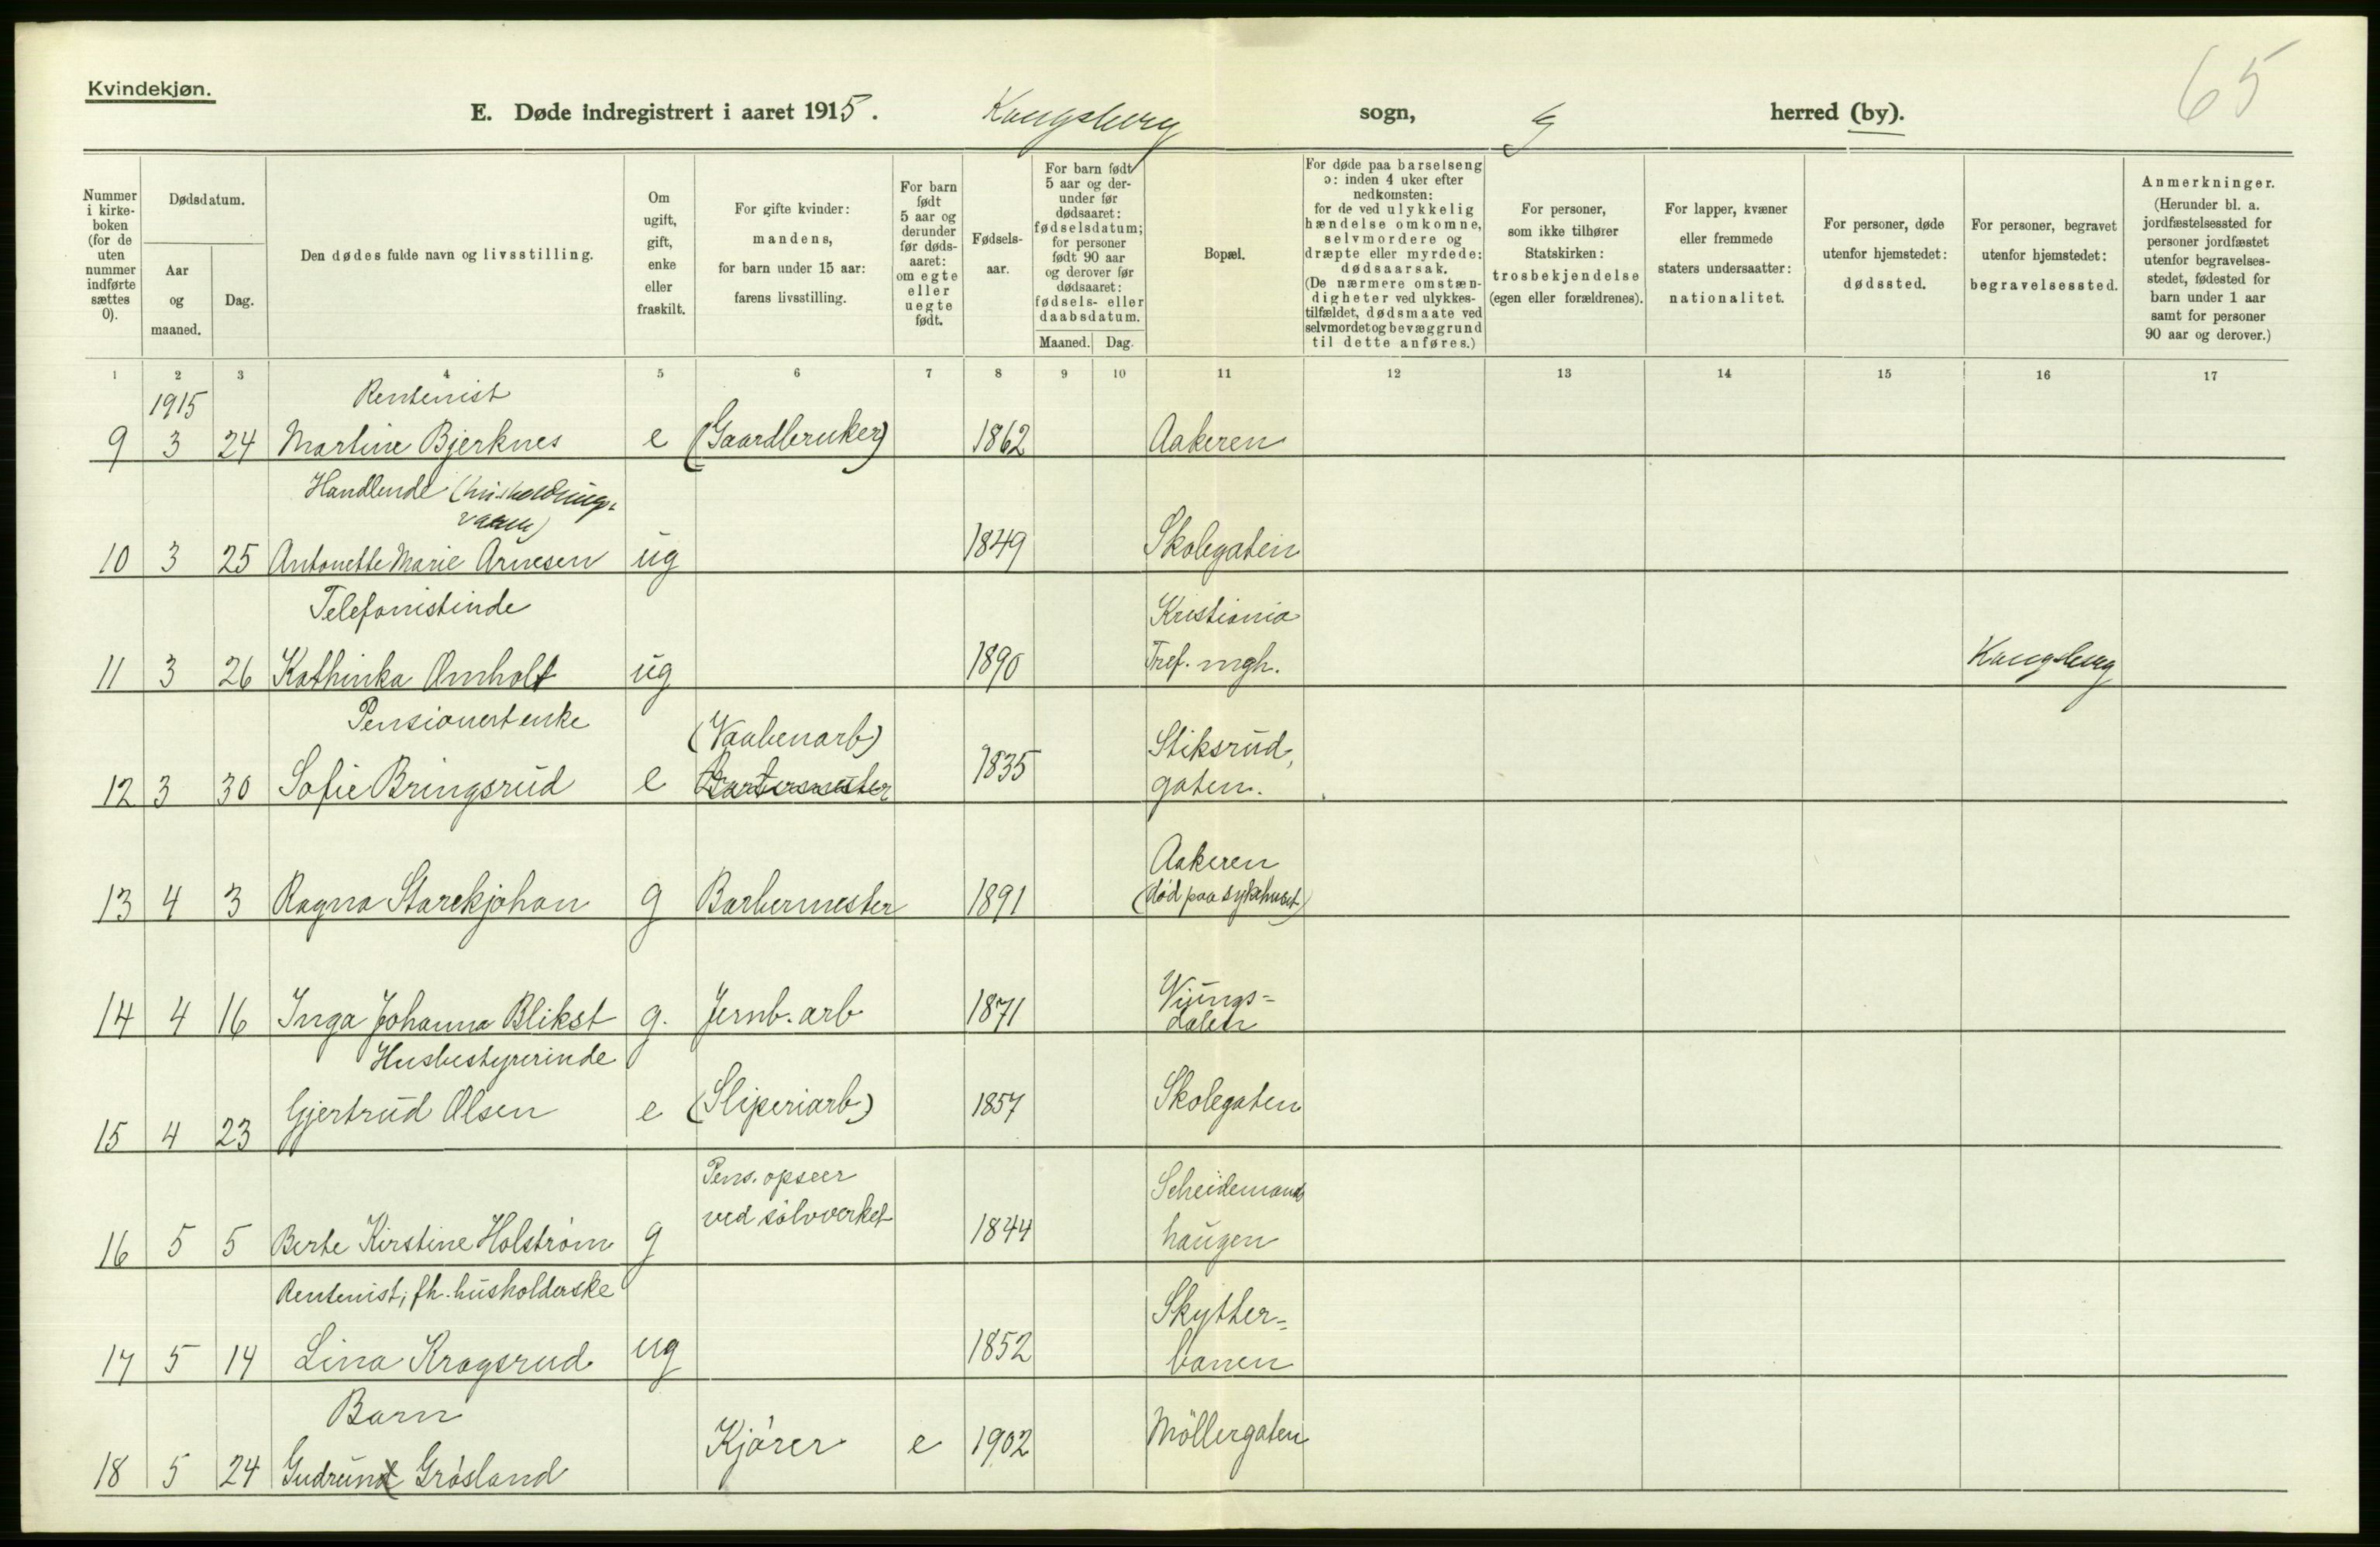 65
Kvindekjøn.
E. Døde indregistrert i aaret 1915. Kongsberg sogn, herred (by).
Nummer i kirke-boken (for de uten nummer indførte sættes 0).
Dødsdatum.
Aar og maaned.
Dag.
Den dødes fulde navn og livsstilling.
Om ugift, gift, enke eller fraskilt.
For gifte kvinder: mandens, for barn under 15 aar: farens livsstilling.
For barn født 5 aar og derunder før døds-aaret: om egte eller uegte født.
Fødsels-aar.
For barn født 5 aar og der-under før dødsaaret: fødselsdatum; for personer født 90 aar og derover før dødsaaret: fødsels- eller daabsdatum.
Maaned. Dag.
Bopæl.
For døde paa barselseng ɔ: inden 4 uker efter nedkomsten: for de ved ulykkelig hændelse omkomne, selvmordere og dræpte eller myrdede: dødsaarsak. (De nærmere omstæn-digheter ved ulykkes-tilfældet, dødsmaate ved selvmordet og bevæggrund til dette anføres.)
For personer, som ikke tilhører Statskirken: trosbekjendelse (egen eller forældrenes).
For lapper, kvæner eller fremmede staters undersaatter: nationalitet.
For personer, døde utenfor hjemstedet: dødssted.
For personer, begravet utenfor hjemstedet: begravelsessted.
Anmerkninger. (Herunder bl. a. jordfæstelsessted for personer jordfæstet utenfor begravelses-stedet, fødested for barn under 1 aar samt for personer 90 aar og derover.)
1 2 3 4 5 6 7 8 9 10 11 12 13 14 15 16 17
1915 Rentenist
9 3 24 Martine Bjerknes e (Gaardbruker) 1862 Aakeren
Handlende (husholdnings-
varer)
10 3 25 Antonette Marie Arnesen ug 1849 Skolegaten
Telefonistinde Kristiania
11 3 26 Kathinka Omholt ug 1890 Tref. mgh. Kongsberg
Pensionert enke (Vaabenarb) Stiksrud,
12 3 30 Sofie Bringsrud e Barbermester 1835 gaten.
Aakeren
13 4 3 Ragna Starckjohan g Barbermester 1891 (død paa sykehuset)
Vijungs-
14 4 16 Inga Johanna Blikst g. Jernb. arb 1871 dalen
Husbestyrerinde
15 4 23 Gjertrud Olsen e (Sliperiarb) 1857 Skolegaten
Pens. opseer Scheidemands
ved sølvverket
16 5 5 Berte Kirstine Holstrøm g 1844 haugen
Rentenist; fh. husholderske Skytter-
17 5 14 Lina Kragsrud ug 1852 banen
Barn
18 5 24 Gudrun Grøsland Kjører e 1902 Møllergaten